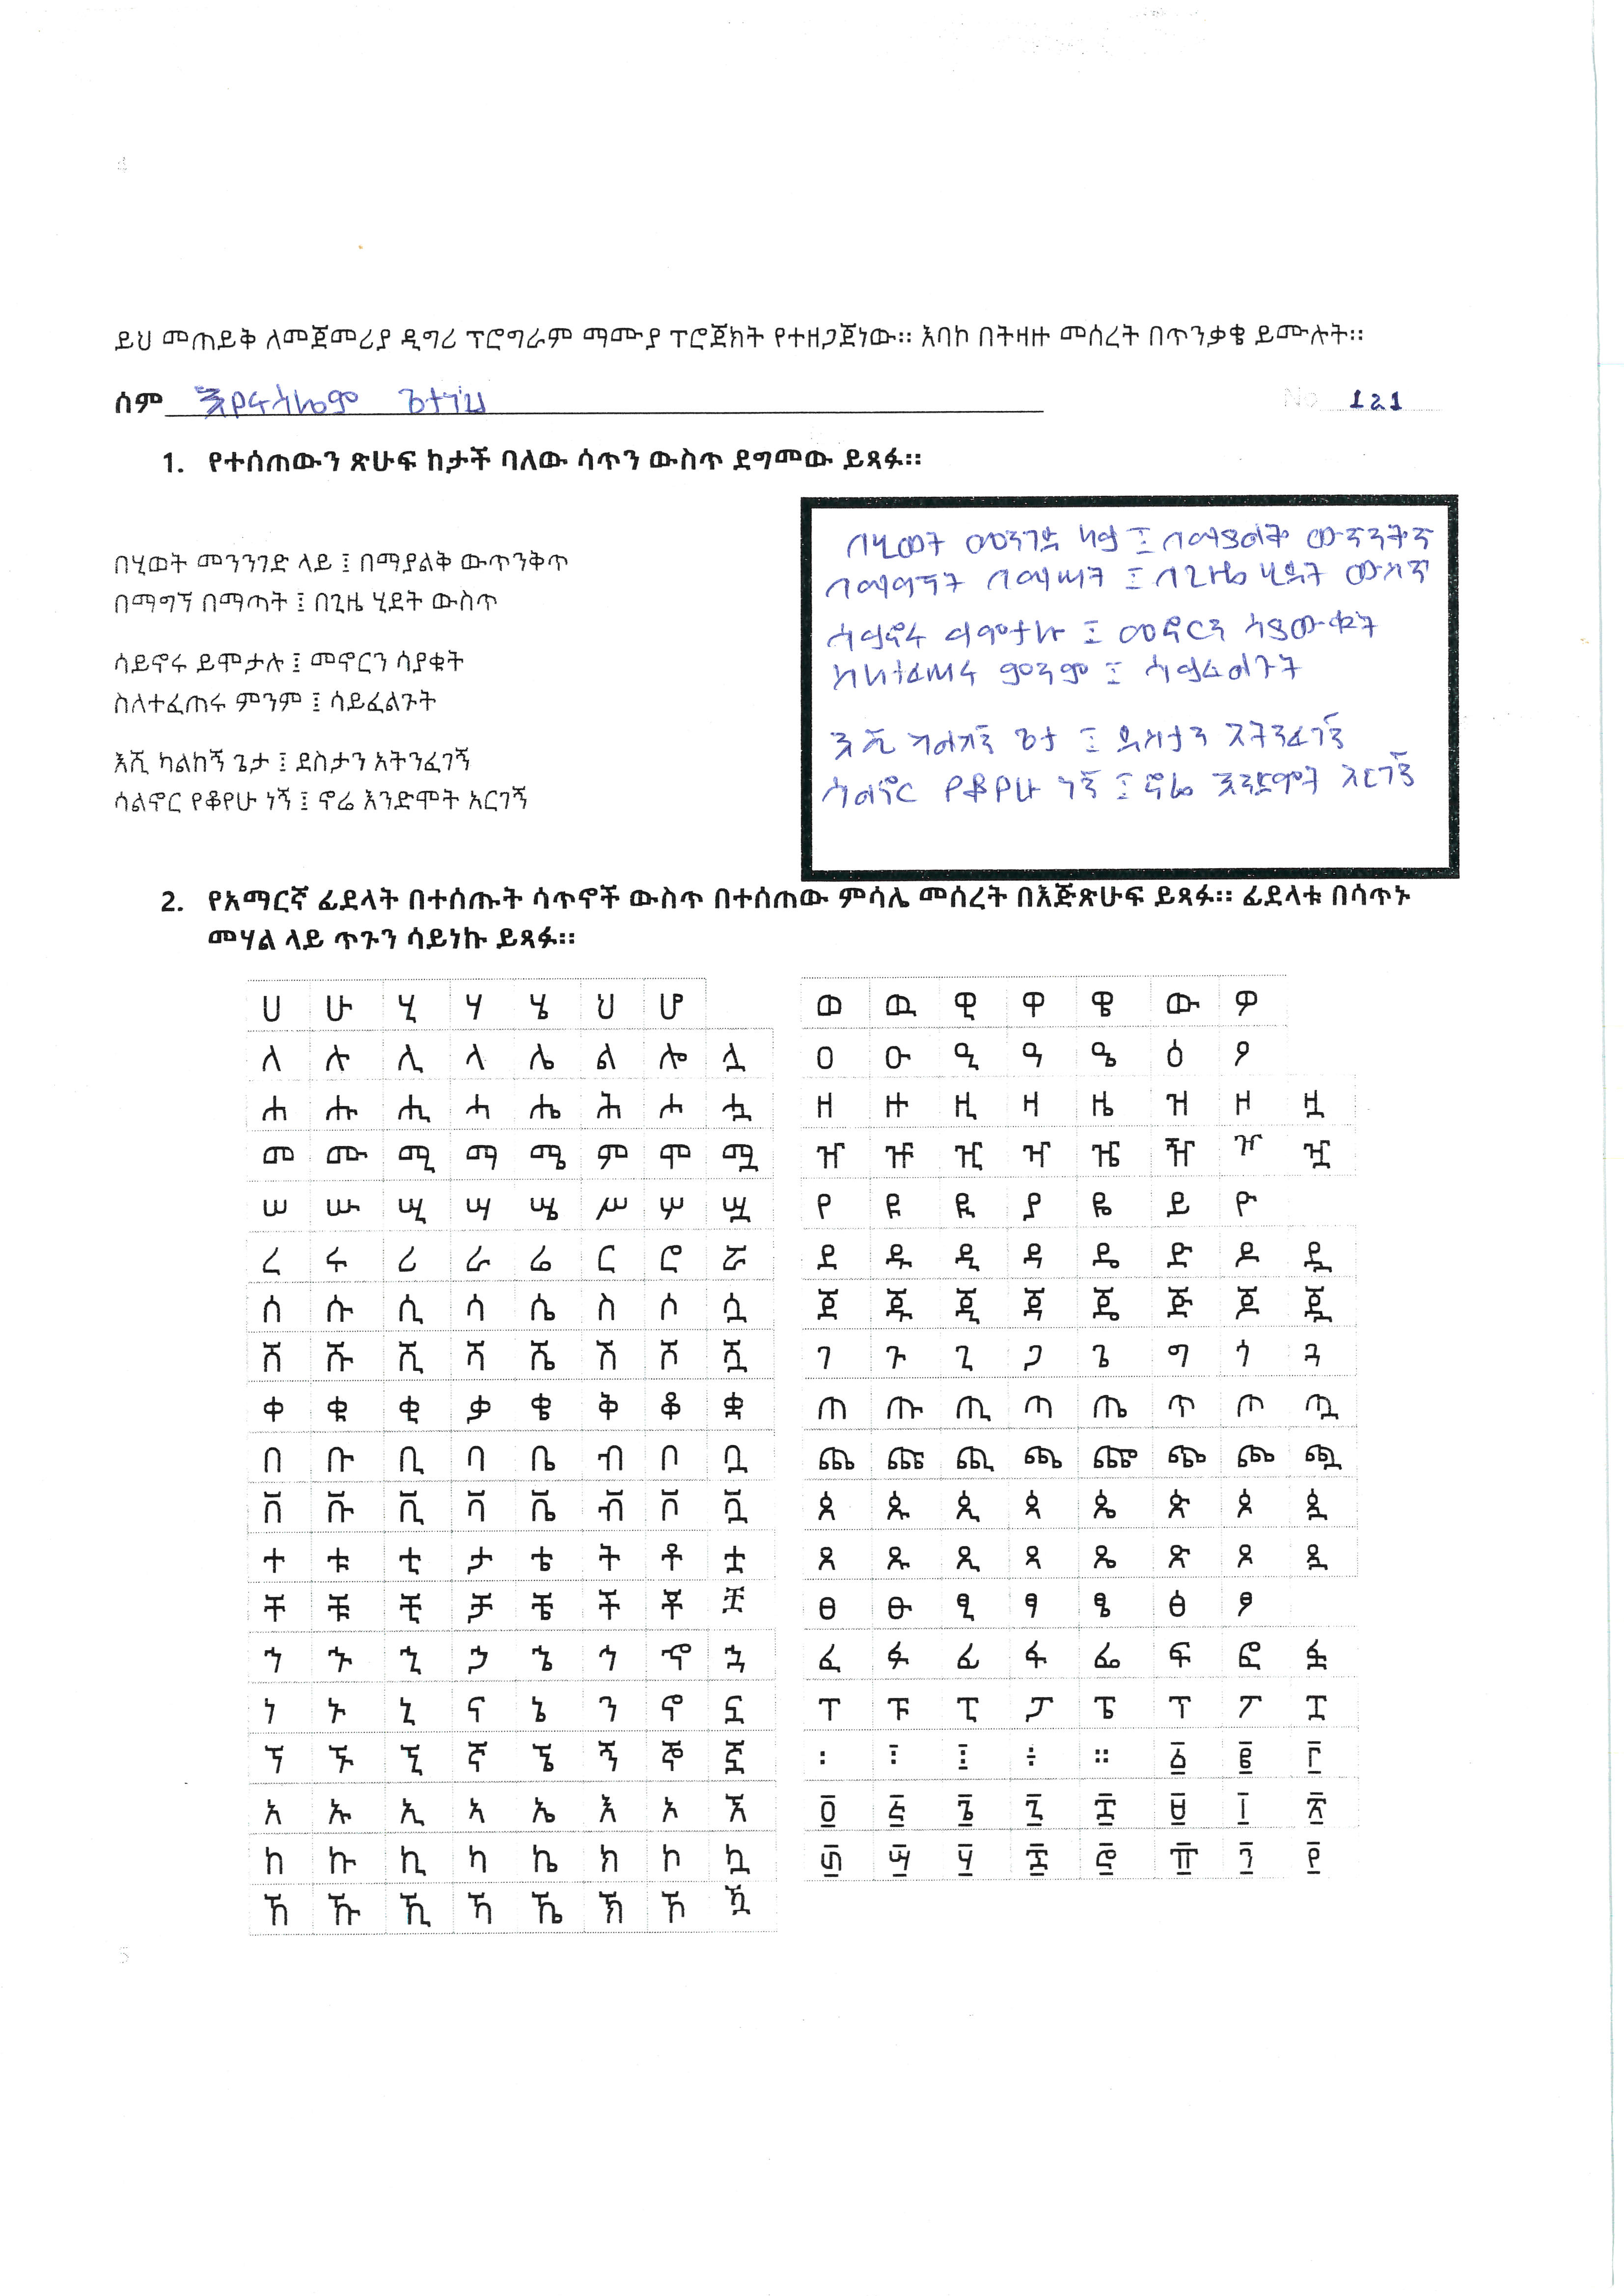 ይህ መጠይቅ ለመጀመሪያ ዲግሪ ፕሮግራም ማሙያ ፕሮጀክት የተዘጋጀነው። እባኮ በትዛዙ መሰረት በጥንቃቄ ይሙሉት።
ስም እየሩሳሌም ጌታነህ No 121
1. የተሰጠውን ጽሁፍ ከታች ባለው ሳጥን ውስጥ ደግመው ይጻፉ።
በሂወት መንንገድ ላይ ፤ በማያልቅ ውጥንቅጥ
በማግኘ በማጣት ፤ በጊዜ ሂደት ውስጥ
ሳይኖሩ ይሞታሉ ፤ መኖርን ሳያቁት
ስለተፈጠሩ ምንም ፤ ሳይፈልጉት
እሺ ካልከኝ ጌታ ፤ ደስታን አትንፈገኝ
ሳልኖር የቆየሁ ነኝ ፤ ኖሬ እንድሞት አርገኝ
በሂወት መንገድ ላይ ፤ በማያልቅ ውጥንቅጥ
በማግኘት በማጣት ፤ በጊዜ ሂደት ውስጥ
ሳይኖሩ ይሞታሉ ፤ መኖርን ሳያውቁት
ስለተፈጠሩ ምንም ፤ ሳይፈልጉት
እሺ ካልከኝ ጌታ ፤ ደስታን አትንፈገኝ
ሳልኖር የቆየሁ ነኝ ፤ ኖሬ እንድሞት አርገኝ
2. የአማርኛ ፊደላት በተሰጡት ሳጥኖች ውስጥ በተሰጠው ምሳሌ መሰረት በእጅጽሁፍ ይጻፉ። ፊደላቱ በሳጥኑ
መሃል ላይ ጥጉን ሳይነኩ ይጻፉ።
ሀ ሁ ሂ ሃ ሄ ህ ሆ
ለ ሉ ሊ ላ ሌ ል ሎ ሏ
ሐ ሑ ሒ ሓ ሔ ሕ ሖ ሗ
መ ሙ ሚ ማ ሜ ም ሞ ሟ
ሠ ሡ ሢ ሣ ሤ ሥ ሦ ሧ
ረ ሩ ሪ ራ ሬ ር ሮ ሯ
ሰ ሱ ሲ ሳ ሴ ስ ሶ ሷ
ሸ ሹ ሺ ሻ ሼ ሽ ሾ ሿ
ቀ ቁ ቂ ቃ ቄ ቅ ቆ ቋ
በ ቡ ቢ ባ ቤ ብ ቦ ቧ
ቨ ቩ ቪ ቫ ቬ ቭ ቮ ቯ
ተ ቱ ቲ ታ ቴ ት ቶ ቷ
ቸ ቹ ቺ ቻ ቼ ች ቾ ቿ
ኀ ኁ ኂ ኃ ኄ ኅ ኆ ኋ
ነ ኑ ኒ ና ኔ ን ኖ ኗ
ኘ ኙ ኚ ኛ ኜ ኝ ኞ ኟ
አ ኡ ኢ ኣ ኤ እ ኦ ኧ
ከ ኩ ኪ ካ ኬ ክ ኮ ኳ
ኸ ኹ ኺ ኻ ኼ ኽ ኾ ዃ
ወ ዉ ዊ ዋ ዌ ው ዎ
ዐ ዑ ዒ ዓ ዔ ዕ ዖ
ዘ ዙ ዚ ዛ ዜ ዝ ዞ ዟ
ዠ ዡ ዢ ዣ ዤ ዥ ዦ ዧ
የ ዩ ዪ ያ ዬ ይ ዮ
ደ ዱ ዲ ዳ ዴ ድ ዶ ዷ
ጀ ጁ ጂ ጃ ጄ ጅ ጆ ጇ
ገ ጉ ጊ ጋ ጌ ግ ጎ ጓ
ጠ ጡ ጢ ጣ ጤ ጥ ጦ ጧ
ጨ ጩ ጪ ጫ ጬ ጭ ጮ ጯ
ጰ ጱ ጲ ጳ ጴ ጵ ጶ ጷ
ጸ ጹ ጺ ጻ ጼ ጽ ጾ ጿ
ፀ ፁ ፂ ፃ ፄ ፅ ፆ
ፈ ፉ ፊ ፋ ፌ ፍ ፎ ፏ
ፐ ፑ ፒ ፓ ፔ ፕ ፖ ፗ
፡ ፤ ፤ ፥ ። ፩ ፪ ፫
፬ ፭ ፮ ፯ ፰ ፱ ፲ ፳
፴ ፵ ፶ ፷ ፸ ፹ ፺ ፻